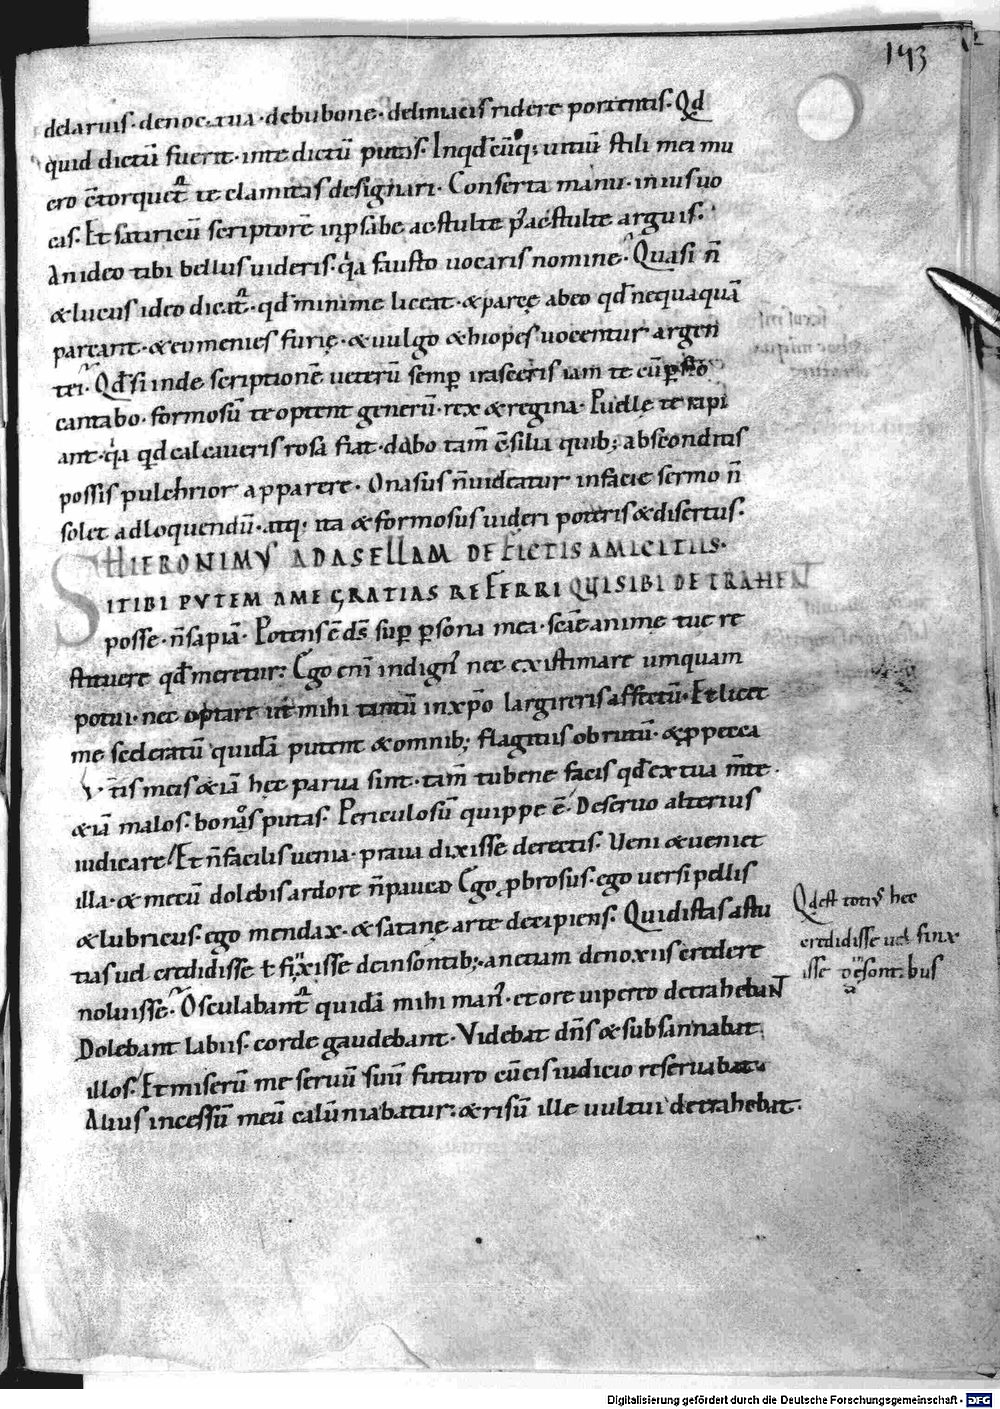 193
delaruis · denoctua · debubone · deliniacis ridere portentis · Qd
quid dictū fuerit · inte dictū putas · Inqđcūq; uitiū stili mei mu
cro c̄torquet᷑ te clamitas designari · Conserta manu · inius uo
cas · Et satiricū scriptorē inpsabe ac stulte p̄ac stulte arguis ·
An ideo tibi bellus uideris · qa fausto uocaris nomine · Quasi n̄
& lucus ideo dicat᷑ · qđ minime luceat · & parcę abeo qđ nequaquā
parcant · & eumenies furię · & uulgo &hiopes uocentur argen
tei · Qđ si inde scriptionē ueterū semp irasceris iam te cū psio
cantabo · formosū te optent generū · rex & regina · Puellę te rapi
ant · qa qd calcaueris rosa fiat · dabo tam̄ c̄siliā quib; absconditis
possis pulchrior apparere · Onasus n̄uideatur infacie sermo n̄
solet adloquendū · atq; ita & formosus uideri poteris & disertus ·
HIERONIMVS ADASELLAM DE FICTIS AMICITIIS ·
SITIBI PVTEM AME GRATIAS REFERRI QUISIBI DETRAHENT
posse · n̄sapiā · Potens ē ds̄ sup psona mea · sc̄ae animę tuę re
stituere qđ meretur : Ego eni indign᷒ nec existimare umquam
potui · nec optare ut mihi tantū inxp̄o largireris affectū · Et licet
me sceleratū quidā putent & omnib; flagitiis obrutū · & p pecca
tis meis & iā hęc parua sint · tam̄ tu bene facis qđ ex tua m̄te ·
& iā malos · bonos putas · Periculosū quippe ē · De seruo alterius
iudicare / Et n̄facilis uenia · praua dixisse derectis · Veni & ueniet
illa · & mecū dolebis ardore n̄paucos Ego pbrosus · ego uersipellis
& lubricus · ego mendax · & satanę arte decipiens · Quidistas astu
tias uel credidisse ł fixisse deinsontib; · anetiam denoxiis credere
noluisse · Osculabant᷑ quidā mihi man᷒ · et ore uipereo detrahebant
Dolebant labiis · corde gaudebant · Videbat dn̄s & subsannabat
illos · Et miserū me seruū suū futuro cū eis iudicio reseruabat
Alius incessū meū calūniabatur : & risū ille uultui detrahebat ·
Qd est toti᷒ hec
credidisse uel finx
isse de īsontibus